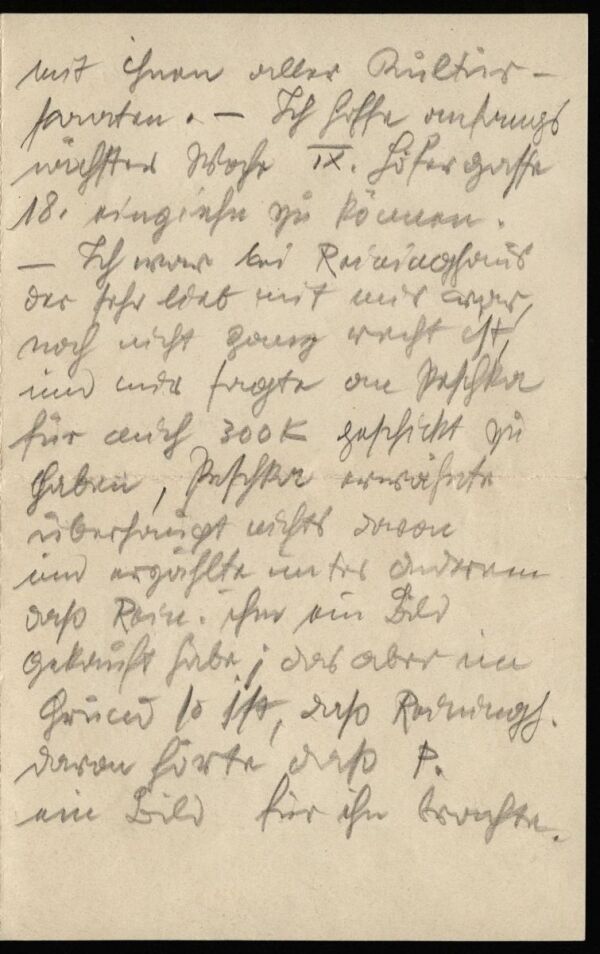 mit ihnen aller Kultur-
staaten. – Ich hoffe anfangs
nächster Woche IX. Höfergasse
18. einziehn zu können.
– Ich war bei Reininghaus
der sehr lieb mit mir war,
noch nicht ganz recht ist,
und mir sagte an Peschka
für mich 300 K geschickt zu
haben, Peschka erwähnte
überhaupt nichts davon
und erzählte unter anderem
daß Rein. ihm ein Bild
gekauft habe; das aber im
Grund so ist, daß Reiningh.
davon hörte daß P.
ein Bild für ihn brachte.